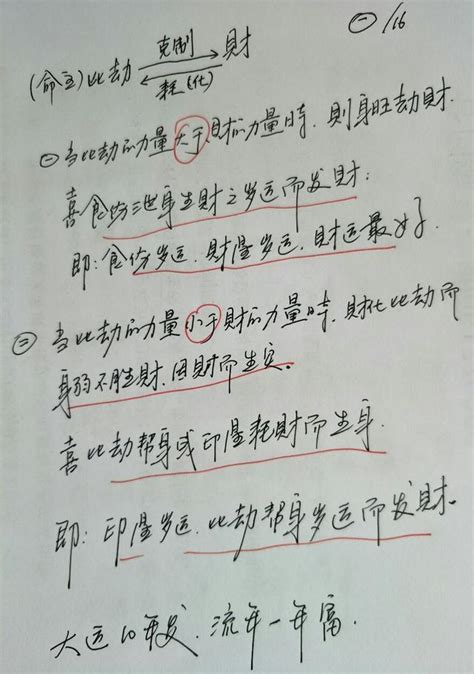 ㊀/16
克制
(命主)比劫 財
耗(化)
㊀当比劫的力量大于財的力量時,則身旺劫財.
喜食伤泄身生財之岁运而发財;
即:食伤岁运.財星岁运.財运最好.
㊁当比劫的力量小于財的力量時.財化比劫而
身弱不胜財.因財而生灾。
喜比劫帮身或印星耗財而生身.
即:印星岁运.比劫帮身岁运而发財.
大运10年发.流年一年富.